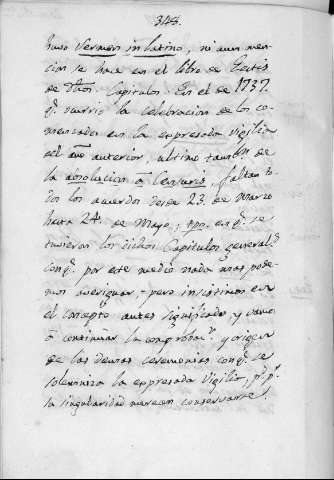 348.
huvo Sermon in latino, ni aun men-
cion se hace en el libro de Exitis
de dhos. Capitulos. En el de 1737.
q.e ocurrio la celebracion de los co-
menzados en la expresada vigilia
del año anterior, ultimo tamb.n de
la absolucion à Censuris, faltan to-
dos los acuerdos desde 23. de Marzo
hasta 24. de Mayo, tpo. en q.e se
tuvieron los dichos Capitulos general.s
conq.e por este medio nada mas pode-
mos averiguar, pero insistimos en
el concepto antes significado, y vamos
à continuar la comprobac.n y origen
de las demas ceremonias conq.e se
solemniza la expresada Vigilia, p.r q.e p.r
la singularidad merecen conservarse.